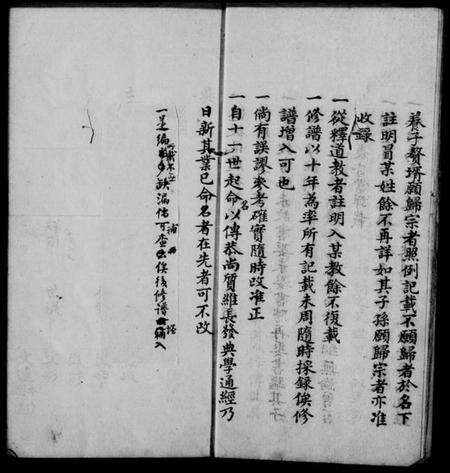 一養子贅壻願歸宗者照例記載不願歸者於名下
註明冒某姓餘不再詳如其子孫願歸宗者亦准
收錄
一從釋道教者註明入某教餘不復載
一修譜以十年為率所有記載未周隨時採錄俟修
譜增入可也
一倘有誤謬參考確實隨時改准正
一自十一世起命名以傳恭尚質維長發典學通經乃
日新其業已命名者在先者可不改
一是編 缺漏 可查 俟後修譜 編入